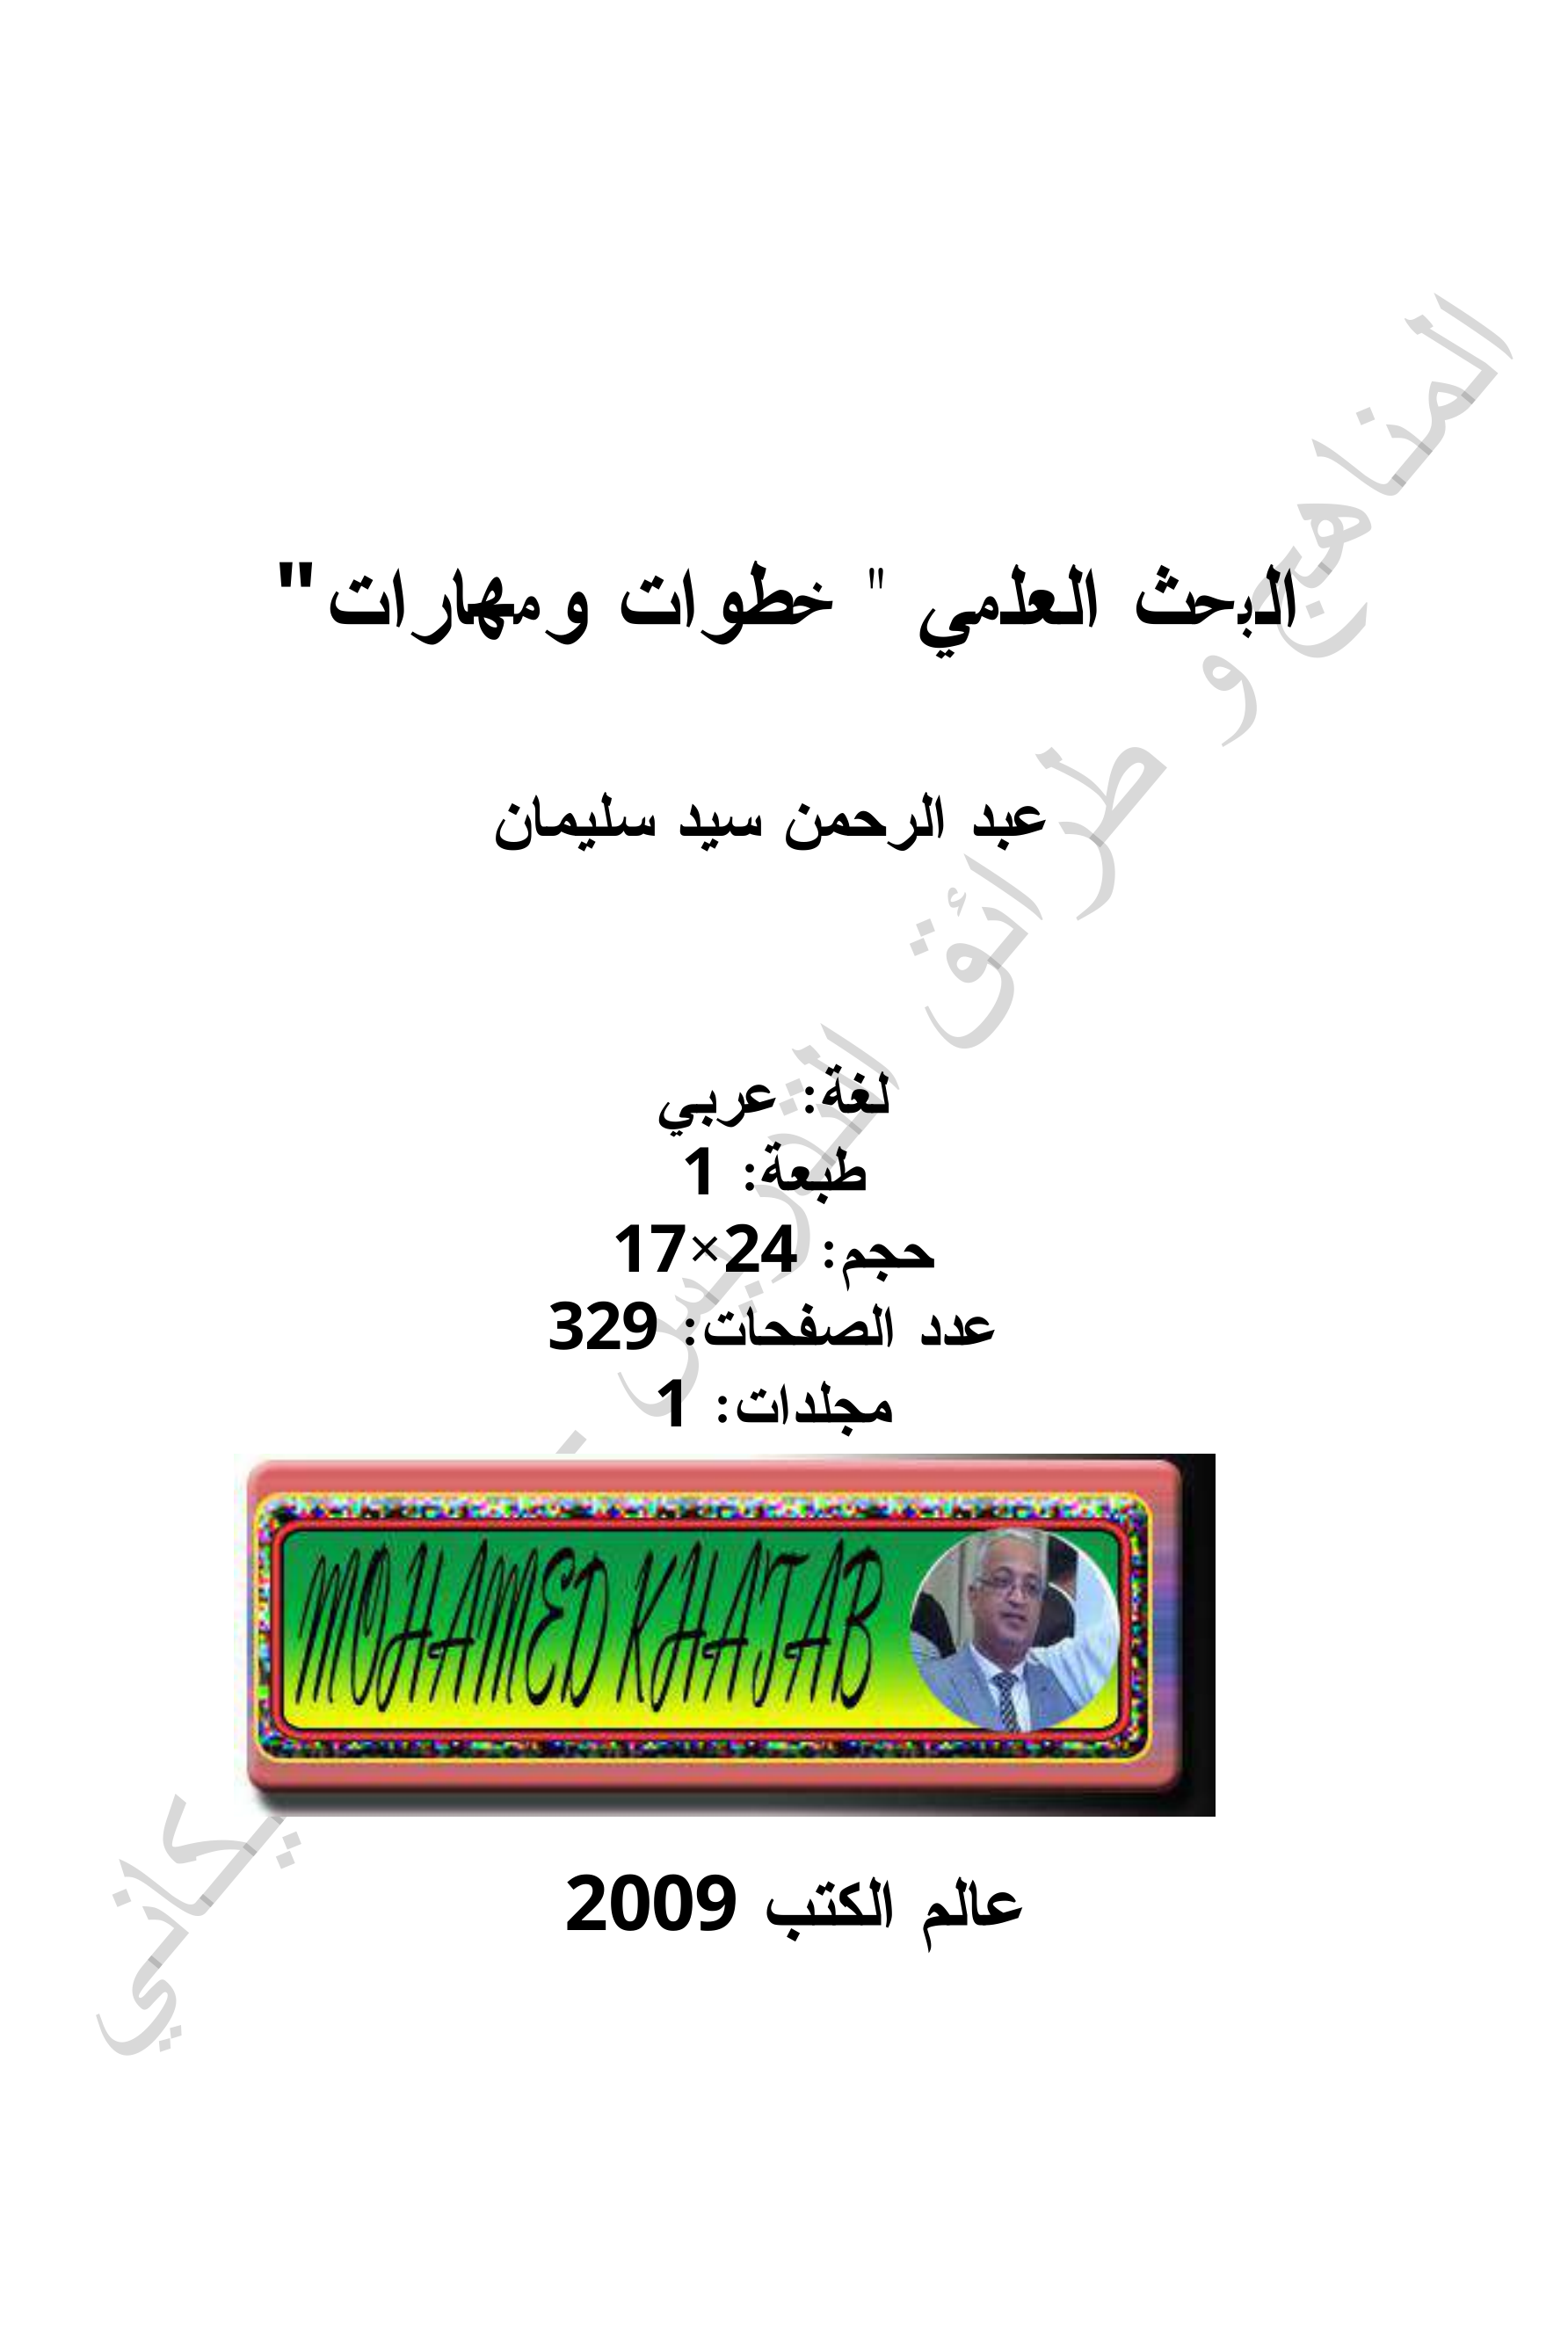 البحث العلمي " خطوات ومهارات"
عبد الرحمن سيد سليمان
لغة: عربي
طبعة: 1
حجم: 24×17
عدد الصفحات: 329
مجلدات: 1
MOHAMED KHATAB
عالم الكتب 2009
المناهج و طرائق التدريس